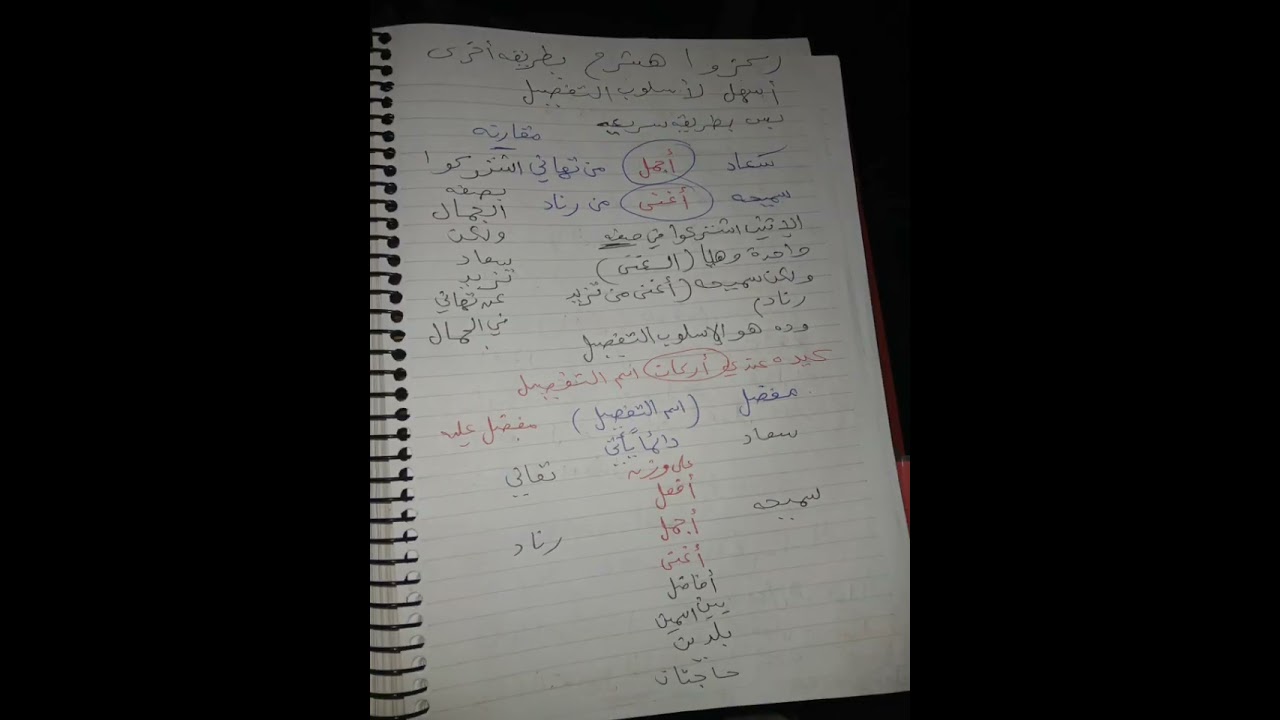 ركزوا هشرح بطريقه أخرى
أسهل لأسلوب التفضيل
بس بطريقه سريعه مقارنه
سعاد أجمل من تهاني اشتركوا
بصفه
سميحه أغنى من رناد الجمال
الإتنين اشتركوا في صفه ولكن
واحدة وهيا (الغنى) سعاد
تزيد
ولكن سميحه (أغنى من تزيد عن تهاني
رناد) في الجمال
وده هو الاسلوب التفضيل
كيده عندي أركان اسم التفضيل
مفضل (اسم التفضيل) مفضل عليه
سعاد دائما يأتي
على وزن تهاني
أفعل
سميحه
أجمل رناد
أغنى
أفاضل
بين اسمين
بلدين
حاجتان